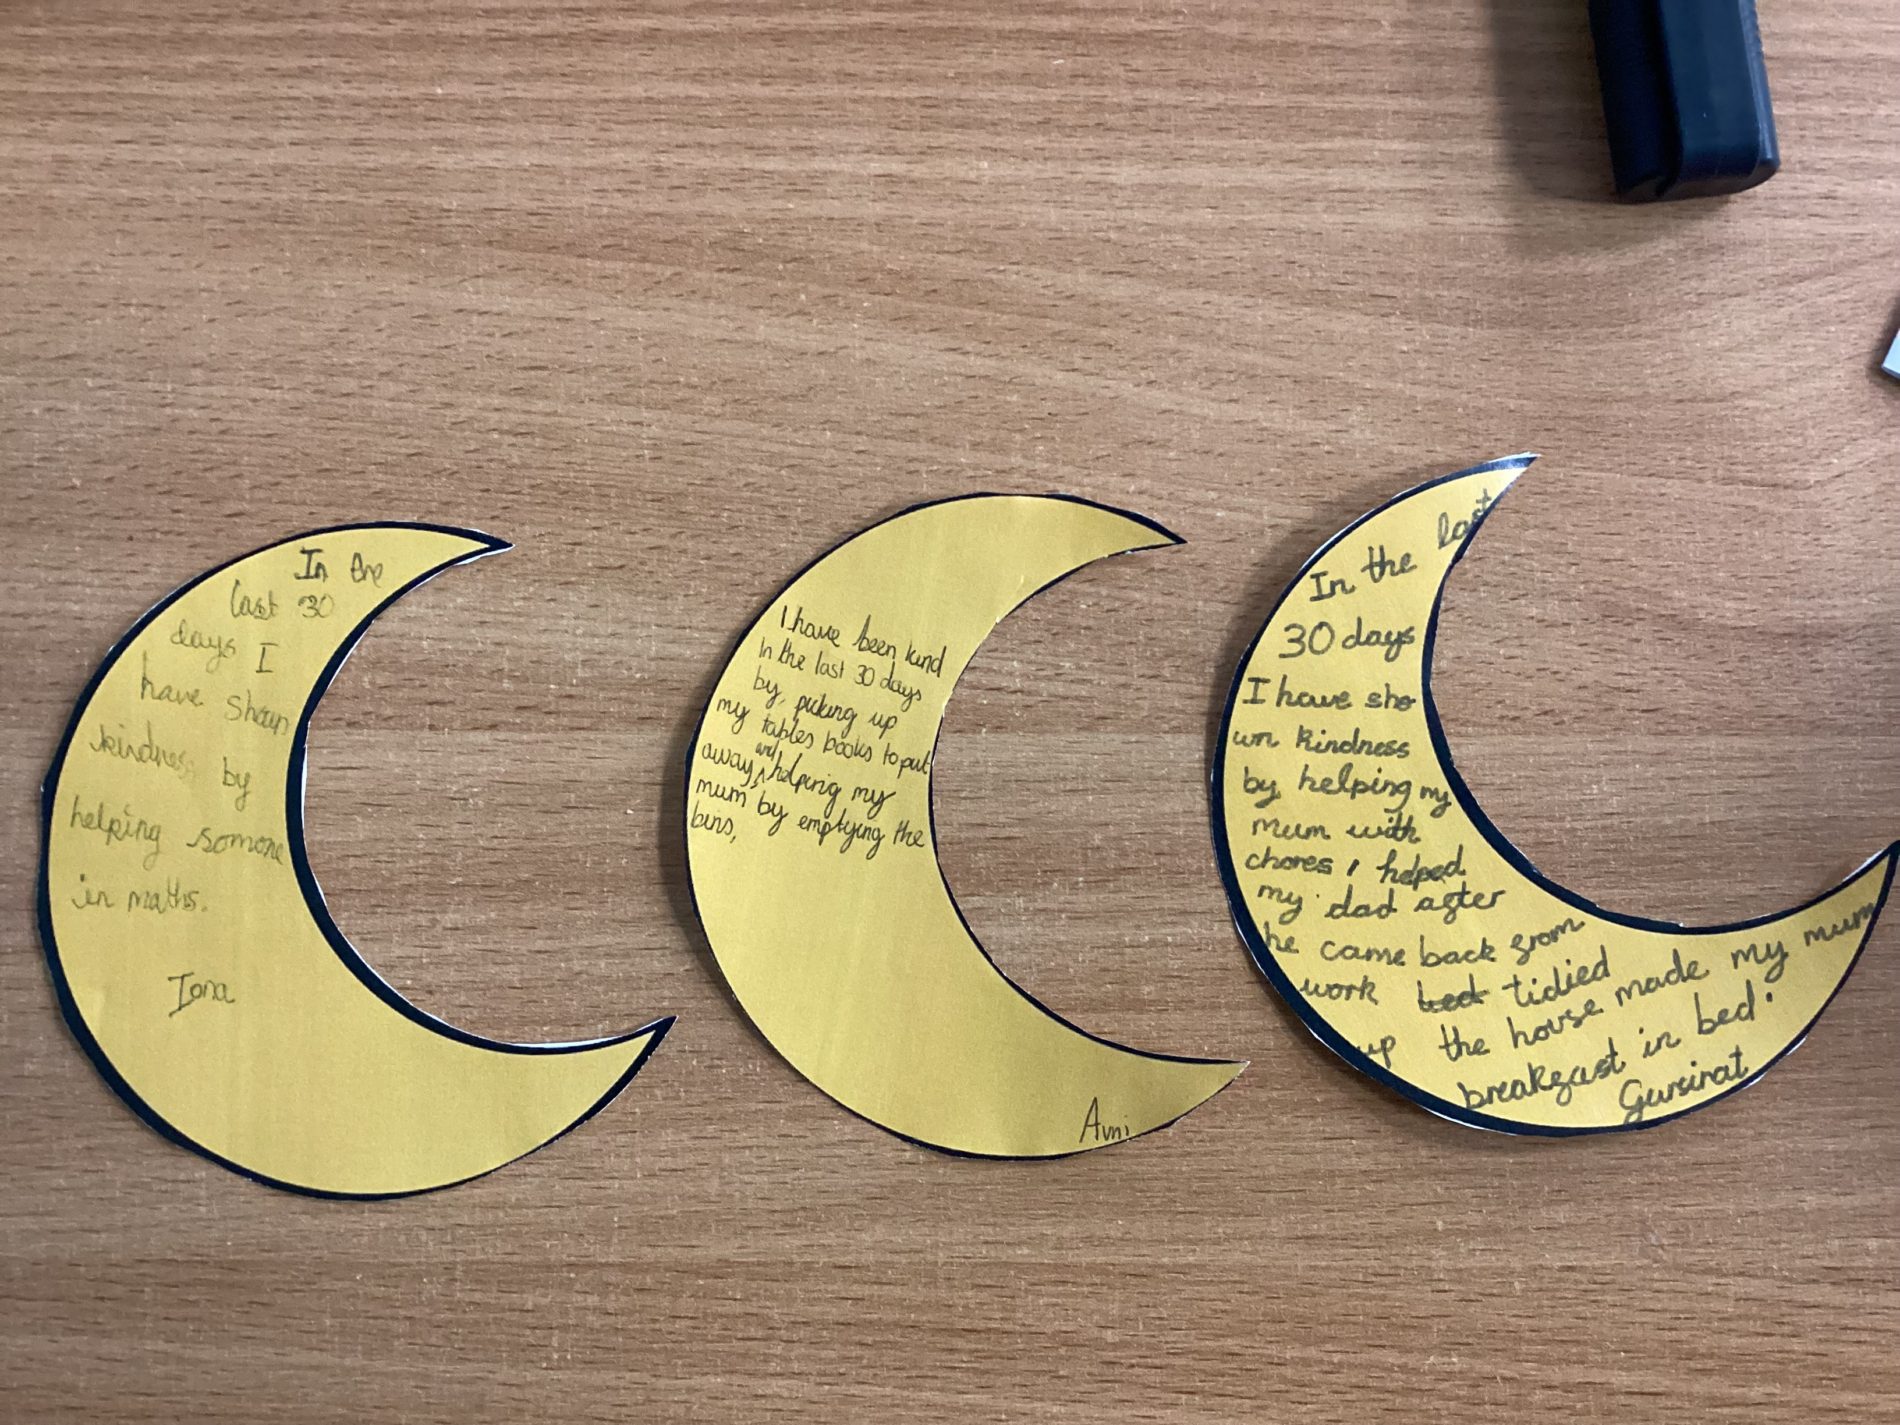 In the
last 30
days I
have shown
kindness by
helping somone
in maths.
Iona
I have been kind
In the last 30 days
by, picking up
my tables books to put
away, and helping my
mum by emptying the
bins,
Avni
In the last
30 days
I have sho
wn kindness
by helping my
mum with
chores, helped
my dad after
he came back from
work tidied
up the house made my mum
breakfast in bed.
Gursirat